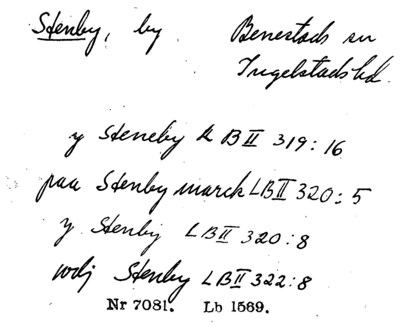 Stenby, by. Benestads sn
Ingelstads hd.
y Steneby LBII 319:16
paa Stenby marck LBII 320:5
y Stenby LBII 320:8
vdj Stenby LBII 322:8
Nr 7081. Lb 1569.